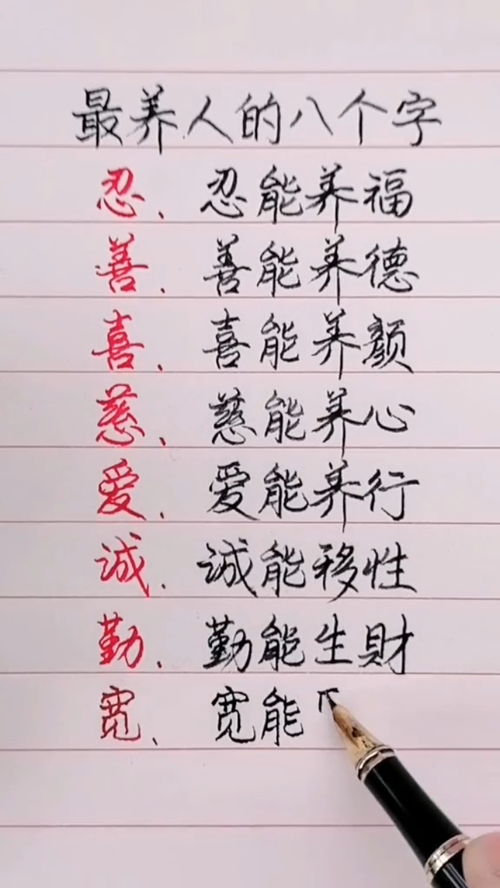 最养人的八个字
忍、忍能养福
善、善能养德
喜、喜能养颜
慈、慈能养心
爱、爱能养行
诚、诚能移性
勤、勤能生财
宽、宽能